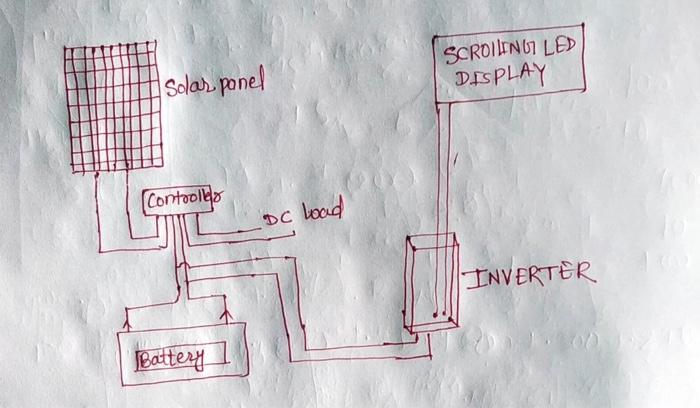 SCROLLING LED
DISPLAY
Solar panel
Controller
DC Load
INVERTER
Battery